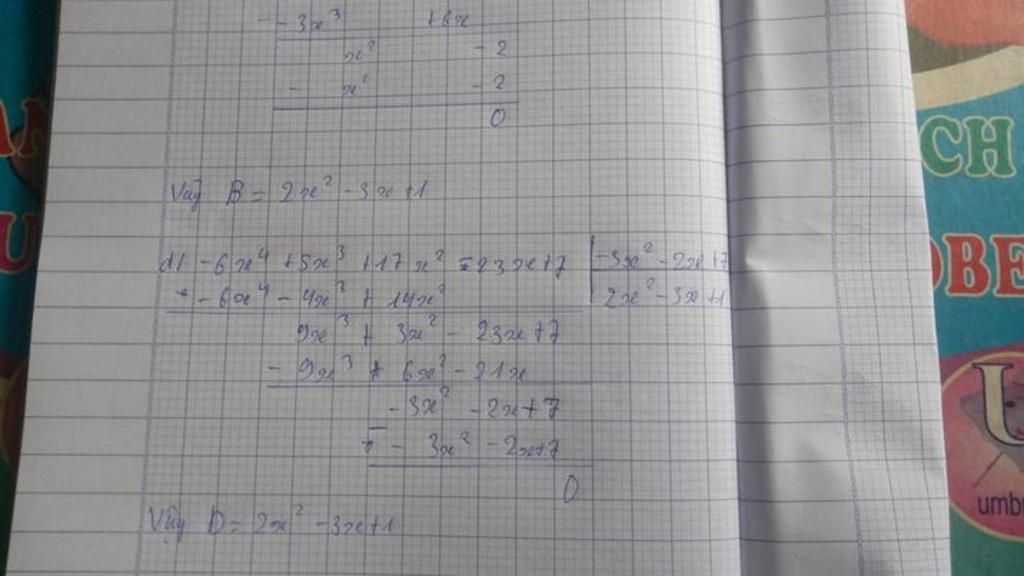 - - 3x³ + 6x
x² - 2
- x² - 2
0
Vậy B = 2x² - 3x + 1
d) -6x⁴ + 5x³ + 17x² - 23x + 7 | -3x² - 2x + 7
- -6x⁴ - 4x³ + 14x² | 2x² - 3x + 1
9x³ + 3x² - 23x + 7
- 9x³ + 6x² - 21x
-3x² - 2x + 7
- - 3x² - 2x + 7
0
Vậy D = 2x² - 3x + 1
CH
OBE
U
umb